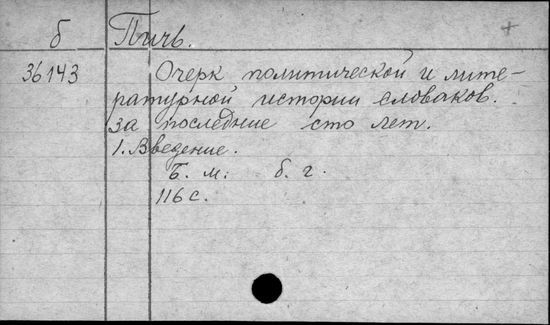 б Пичъ. +
36143 Очерк политической и лите-
ратурной истории словаков.
за последние сто лет.
1. Введение.
Б. м. б. г.
116 с.